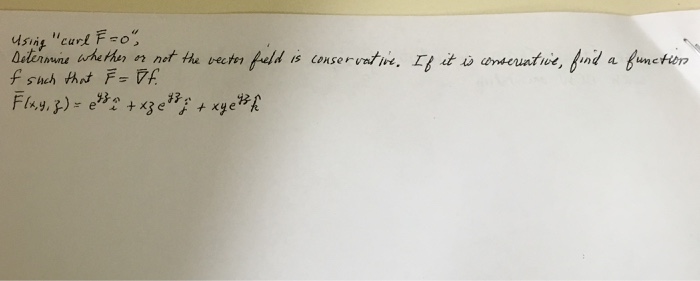 Using "curl F̄=0",
Determine whether or not the vector field is conservative. If it is conservative, find a function
f such that F̄ = ∇̄f.
F̄(x,y,z) = e^{yz} î + xz e^{yz} ĵ + xye^{yz} k̂